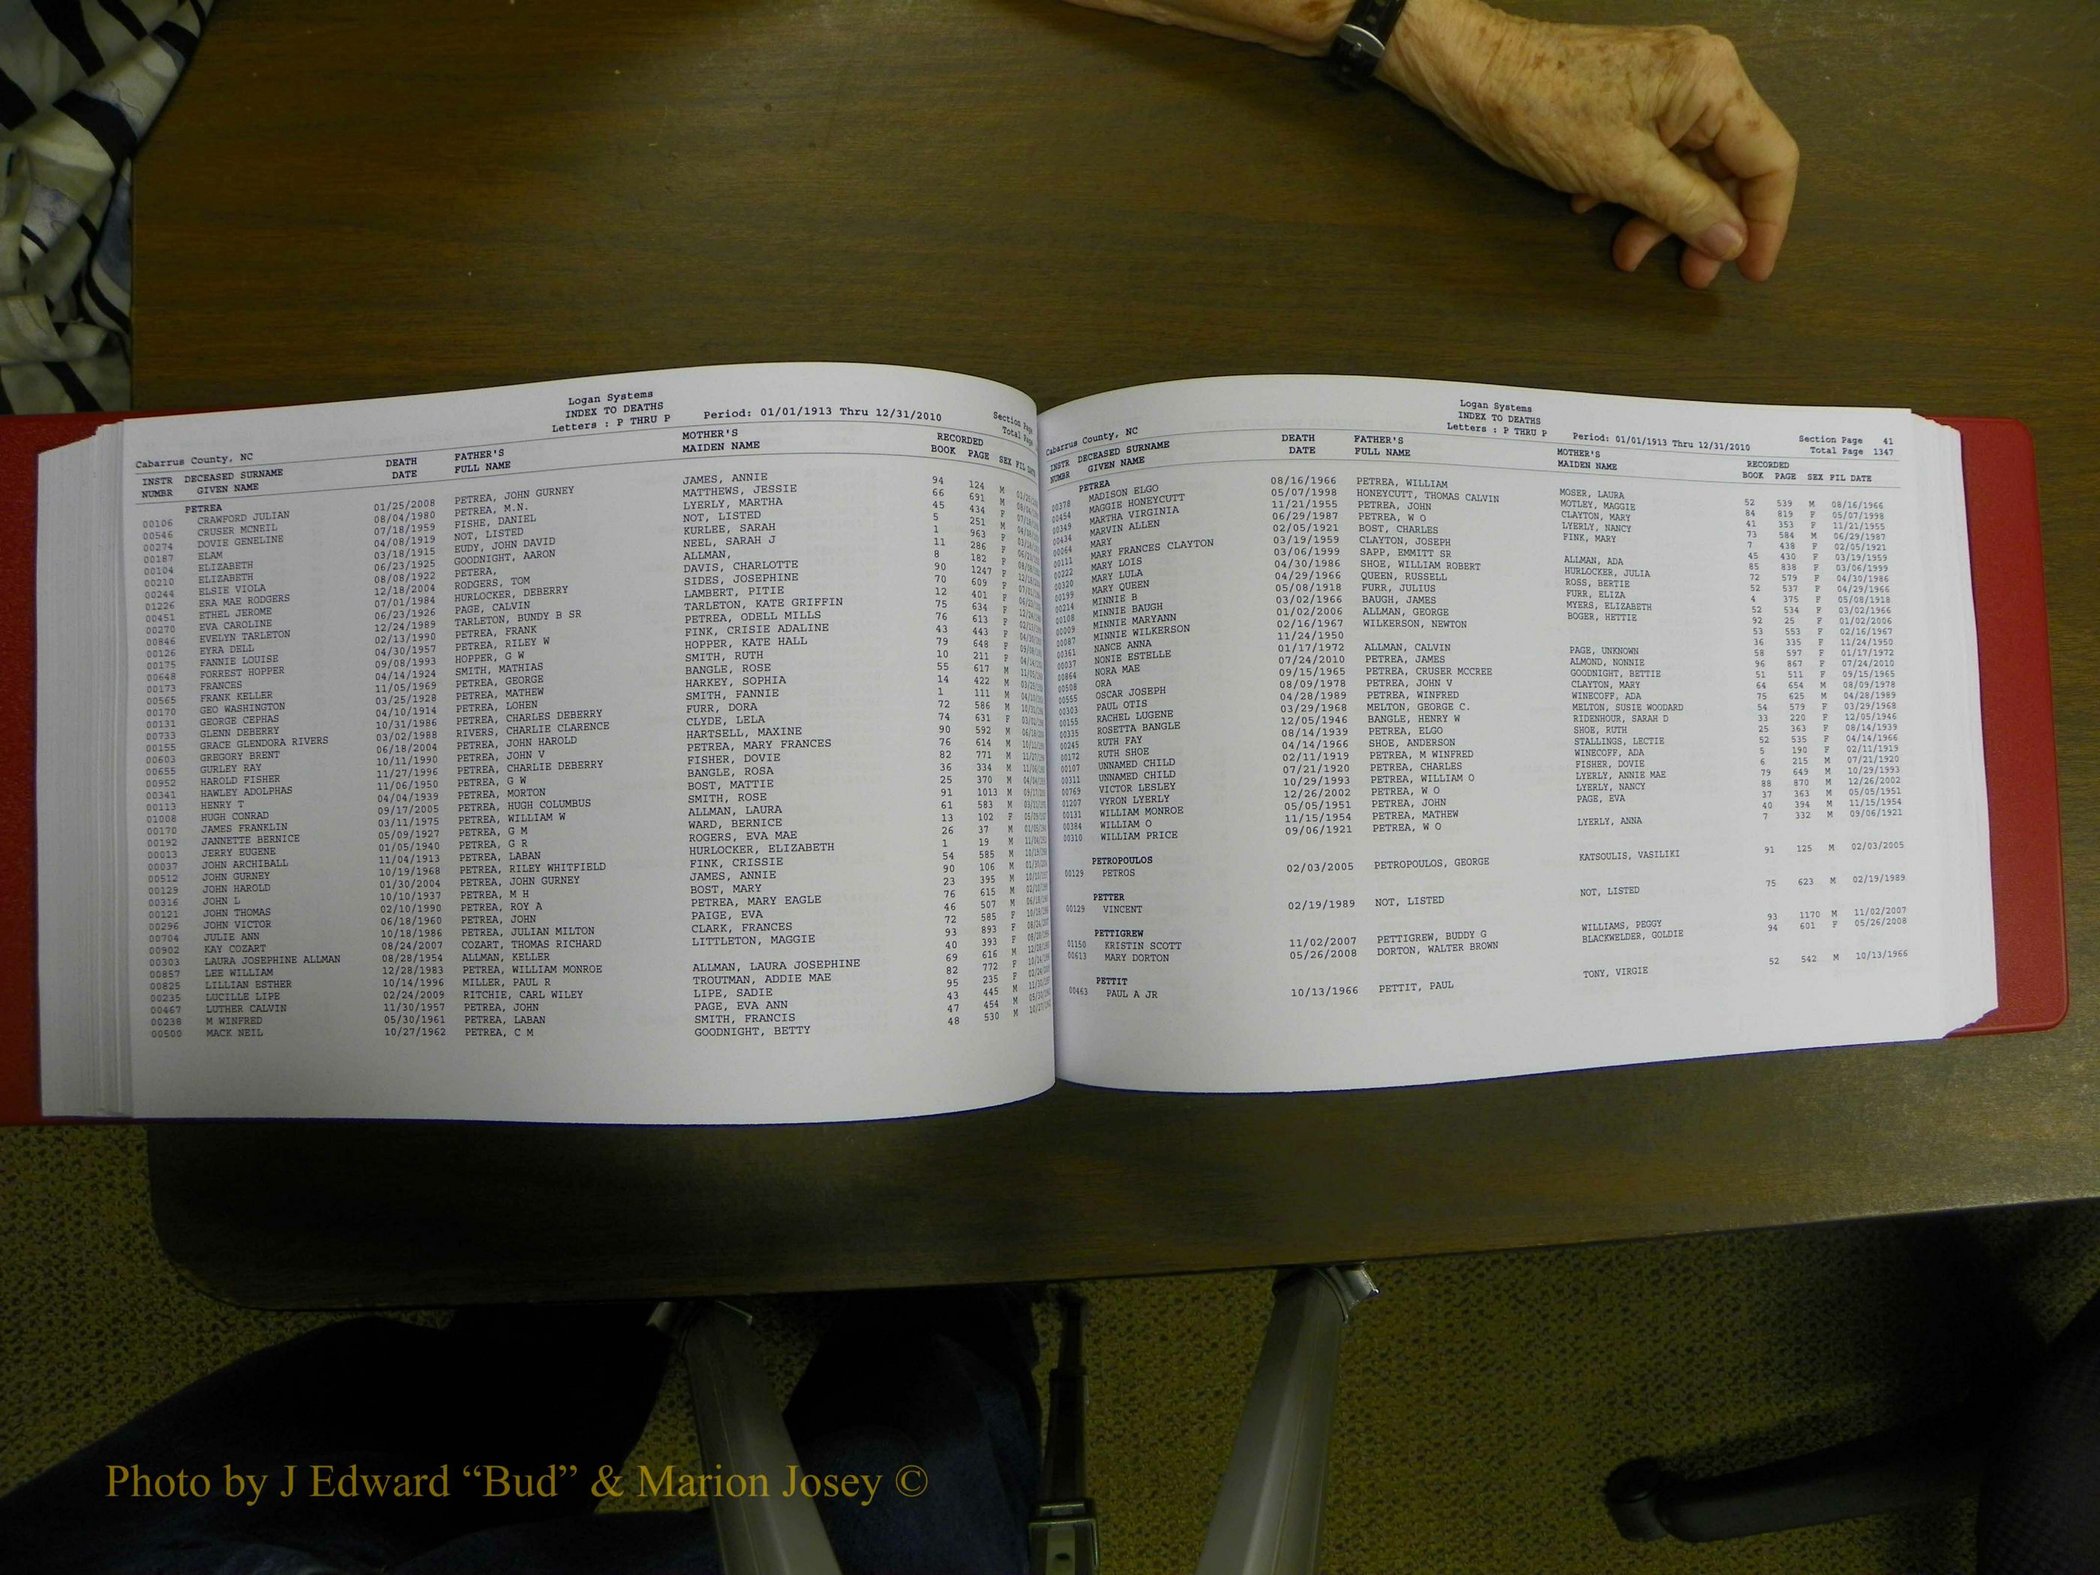 Logan Systems
INDEX TO DEATHS
Letters : P THRU P Period: 01/01/1913 Thru 12/31/2010 Section Page
Cabarrus County, NC Total Page
INSTR DECEASED SURNAME DEATH FATHER'S MOTHER'S RECORDED
NUMBR GIVEN NAME DATE FULL NAME MAIDEN NAME BOOK PAGE SEX FIL DATE
PETREA
00106 CRAWFORD JULIAN 01/25/2008 PETREA, JOHN GURNEY JAMES, ANNIE 94 124 M
00546 CRUSER MCNEIL 08/04/1980 PETREA, M.N. MATTHEWS, JESSIE 66 691 M
00274 DOVIE GENELINE 07/18/1959 FISHE, DANIEL LYERLY, MARTHA 45 434 F
00187 ELAM 04/08/1919 NOT, LISTED NOT, LISTED 5 251 M
00104 ELIZABETH 03/18/1915 EUDY, JOHN DAVID KURLEE, SARAH 1 963 F
00210 ELIZABETH 06/23/1925 GOODNIGHT, AARON NEEL, SARAH J 11 286 F
00244 ELSIE VIOLA 08/08/1922 PETERA, ALLMAN, 8 182 F
01226 ERA MAE RODGERS 12/18/2004 RODGERS, TOM DAVIS, CHARLOTTE 90 1247 F
00451 ETHEL JEROME 07/01/1984 HURLOCKER, DEBERRY SIDES, JOSEPHINE 70 609 F
00270 EVA CAROLINE 06/23/1926 PAGE, CALVIN LAMBERT, PITIE 12 401 F
00846 EVELYN TARLETON 12/24/1989 TARLETON, BUNDY B SR TARLETON, KATE GRIFFIN 75 634 F
00126 EYRA DELL 02/13/1990 PETREA, FRANK PETREA, ODELL MILLS 76 613 F
00175 FANNIE LOUISE 04/30/1957 PETREA, RILEY W FINK, CRISIE ADALINE 43 443 F
00648 FORREST HOPPER 09/08/1993 HOPPER, G W HOPPER, KATE HALL 79 648 F
00173 FRANCES 04/14/1924 SMITH, MATHIAS SMITH, RUTH 10 211 F
00565 FRANK KELLER 11/05/1969 PETREA, GEORGE BANGLE, ROSE 55 617 M
00170 GEO WASHINGTON 03/25/1928 PETREA, MATHEW HARKEY, SOPHIA 14 422 M
00131 GEORGE CEPHAS 04/10/1914 PETREA, LOHEN SMITH, FANNIE 1 111 M
00733 GLENN DEBERRY 10/31/1986 PETREA, CHARLES DEBERRY FURR, DORA 72 586 M
00155 GRACE GLENDORA RIVERS 03/02/1988 RIVERS, CHARLIE CLARENCE CLYDE, LELA 74 631 F
00603 GREGORY BRENT 06/18/2004 PETREA, JOHN HAROLD HARTSELL, MAXINE 90 592 M
00655 GURLEY RAY 10/11/1990 PETREA, JOHN V PETREA, MARY FRANCES 76 614 M
00952 HAROLD FISHER 11/27/1996 PETREA, CHARLIE DEBERRY FISHER, DOVIE 82 771 M
00341 HAWLEY ADOLPHAS 11/06/1950 PETREA, G W BANGLE, ROSA 36 334 M
00113 HENRY T 04/04/1939 PETREA, MORTON BOST, MATTIE 25 370 M
01008 HUGH CONRAD 09/17/2005 PETREA, HUGH COLUMBUS SMITH, ROSE 91 1013 M
00170 JAMES FRANKLIN 03/11/1975 PETREA, WILLIAM W ALLMAN, LAURA 61 583 M
00192 JANNETTE BERNICE 05/09/1927 PETREA, G M WARD, BERNICE 13 102 F
00013 JERRY EUGENE 01/05/1940 PETREA, G R ROGERS, EVA MAE 26 37 M
00037 JOHN ARCHIBALL 11/04/1913 PETREA, LABAN HURLOCKER, ELIZABETH 1 19 M
00512 JOHN GURNEY 10/19/1968 PETREA, RILEY WHITFIELD FINK, CRISSIE 54 585 M
00129 JOHN HAROLD 01/30/2004 PETREA, JOHN GURNEY JAMES, ANNIE 90 106 M
00316 JOHN L 10/10/1937 PETREA, M H BOST, MARY 23 395 M
00121 JOHN THOMAS 02/10/1990 PETREA, ROY A PETREA, MARY EAGLE 76 615 M
00296 JOHN VICTOR 06/18/1960 PETREA, JOHN PAIGE, EVA 46 507 M
00704 JULIE ANN 10/18/1986 PETREA, JULIAN MILTON CLARK, FRANCES 72 585 F
00902 KAY COZART 08/24/2007 COZART, THOMAS RICHARD LITTLETON, MAGGIE 93 893 F
00303 LAURA JOSEPHINE ALLMAN 08/28/1954 ALLMAN, KELLER 40 393 F
00857 LEE WILLIAM 12/28/1983 PETREA, WILLIAM MONROE ALLMAN, LAURA JOSEPHINE 69 616 M
00825 LILLIAN ESTHER 10/14/1996 MILLER, PAUL R TROUTMAN, ADDIE MAE 82 772 F
00235 LUCILLE LIPE 02/24/2009 RITCHIE, CARL WILEY LIPE, SADIE 95 235 F
00467 LUTHER CALVIN 11/30/1957 PETREA, JOHN PAGE, EVA ANN 43 445 M
00238 M WINFRED 05/30/1961 PETREA, LABAN SMITH, FRANCIS 47 454 M
00500 MACK NEIL 10/27/1962 PETREA, C M GOODNIGHT, BETTY 48 530 M
Logan Systems
INDEX TO DEATHS
Letters : P THRU P Period: 01/01/1913 Thru 12/31/2010 Section Page 41
Cabarrus County, NC Total Page 1347
INSTR DECEASED SURNAME DEATH FATHER'S MOTHER'S RECORDED
NUMBR GIVEN NAME DATE FULL NAME MAIDEN NAME BOOK PAGE SEX FIL DATE
PETREA
00378 MADISON ELGO 08/16/1966 PETREA, WILLIAM MOSER, LAURA 52 539 M 08/16/1966
00454 MAGGIE HONEYCUTT 05/07/1998 HONEYCUTT, THOMAS CALVIN MOTLEY, MAGGIE 84 819 F 05/07/1998
00349 MARTHA VIRGINIA 11/21/1955 PETREA, JOHN CLAYTON, MARY 41 353 F 11/21/1955
00434 MARVIN ALLEN 06/29/1987 PETREA, W O LYERLY, NANCY 73 584 M 06/29/1987
00064 MARY 02/05/1921 BOST, CHARLES FINK, MARY 7 438 F 02/05/1921
00111 MARY FRANCES CLAYTON 03/19/1959 CLAYTON, JOSEPH 45 430 F 03/19/1959
00222 MARY LOIS 03/06/1999 SAPP, EMMITT SR ALLMAN, ADA 85 838 F 03/06/1999
00320 MARY LULA 04/30/1986 SHOE, WILLIAM ROBERT HURLOCKER, JULIA 72 579 F 04/30/1986
00199 MARY QUEEN 04/29/1966 QUEEN, RUSSELL ROSS, BERTIE 52 537 F 04/29/1966
00214 MINNIE B 05/08/1918 FURR, JULIUS FURR, ELIZA 4 375 F 05/08/1918
00108 MINNIE BAUGH 03/02/1966 BAUGH, JAMES MYERS, ELIZABETH 52 534 F 03/02/1966
00009 MINNIE MARYANN 01/02/2006 ALLMAN, GEORGE BOGER, HETTIE 92 25 F 01/02/2006
00087 MINNIE WILKERSON 02/16/1967 WILKERSON, NEWTON 53 553 F 02/16/1967
00361 NANCE ANNA 11/24/1950 36 335 F 11/24/1950
00037 NONIE ESTELLE 01/17/1972 ALLMAN, CALVIN PAGE, UNKNOWN 58 597 F 01/17/1972
00864 NORA MAE 07/24/2010 PETREA, JAMES ALMOND, NONNIE 96 867 F 07/24/2010
00508 ORA 09/15/1965 PETREA, CRUSER MCCREE GOODNIGHT, BETTIE 51 511 F 09/15/1965
00555 OSCAR JOSEPH 08/09/1978 PETREA, JOHN V CLAYTON, MARY 64 654 M 08/09/1978
00303 PAUL OTIS 04/28/1989 PETREA, WINFRED WINECOFF, ADA 75 625 M 04/28/1989
00155 RACHEL LUGENE 03/29/1968 MELTON, GEORGE C. MELTON, SUSIE WOODARD 54 579 F 03/29/1968
00335 ROSETTA BANGLE 12/05/1946 BANGLE, HENRY W RIDENHOUR, SARAH D 33 220 F 12/05/1946
00245 RUTH FAY 08/14/1939 PETREA, ELGO SHOE, RUTH 25 363 F 08/14/1939
00172 RUTH SHOE 04/14/1966 SHOE, ANDERSON STALLINGS, LECTIE 52 535 F 04/14/1966
00107 UNNAMED CHILD 02/11/1919 PETREA, M WINFRED WINECOFF, ADA 5 190 F 02/11/1919
00311 UNNAMED CHILD 07/21/1920 PETREA, CHARLES FISHER, DOVIE 6 215 M 07/21/1920
00769 VICTOR LESLEY 10/29/1993 PETREA, WILLIAM O LYERLY, ANNIE MAE 79 649 M 10/29/1993
01207 VYRON LYERLY 12/26/2002 PETREA, W O LYERLY, NANCY 88 870 M 12/26/2002
00131 WILLIAM MONROE 05/05/1951 PETREA, JOHN PAGE, EVA 37 363 M 05/05/1951
00384 WILLIAM O 11/15/1954 PETREA, MATHEW 40 394 M 11/15/1954
00310 WILLIAM PRICE 09/06/1921 PETREA, W O LYERLY, ANNA 7 332 M 09/06/1921
PETROPOULOS
00129 PETROS 02/03/2005 PETROPOULOS, GEORGE KATSOULIS, VASILIKI 91 125 M 02/03/2005
PETTER
00129 VINCENT 02/19/1989 NOT, LISTED NOT, LISTED 75 623 M 02/19/1989
PETTIGREW
01150 KRISTIN SCOTT 11/02/2007 PETTIGREW, BUDDY G WILLIAMS, PEGGY 93 1170 M 11/02/2007
00613 MARY DORTON 05/26/2008 DORTON, WALTER BROWN BLACKWELDER, GOLDIE 94 601 F 05/26/2008
PETTIT
00463 PAUL A JR 10/13/1966 PETTIT, PAUL TONY, VIRGIE 52 542 M 10/13/1966
Photo by J Edward “Bud” & Marion Josey ©